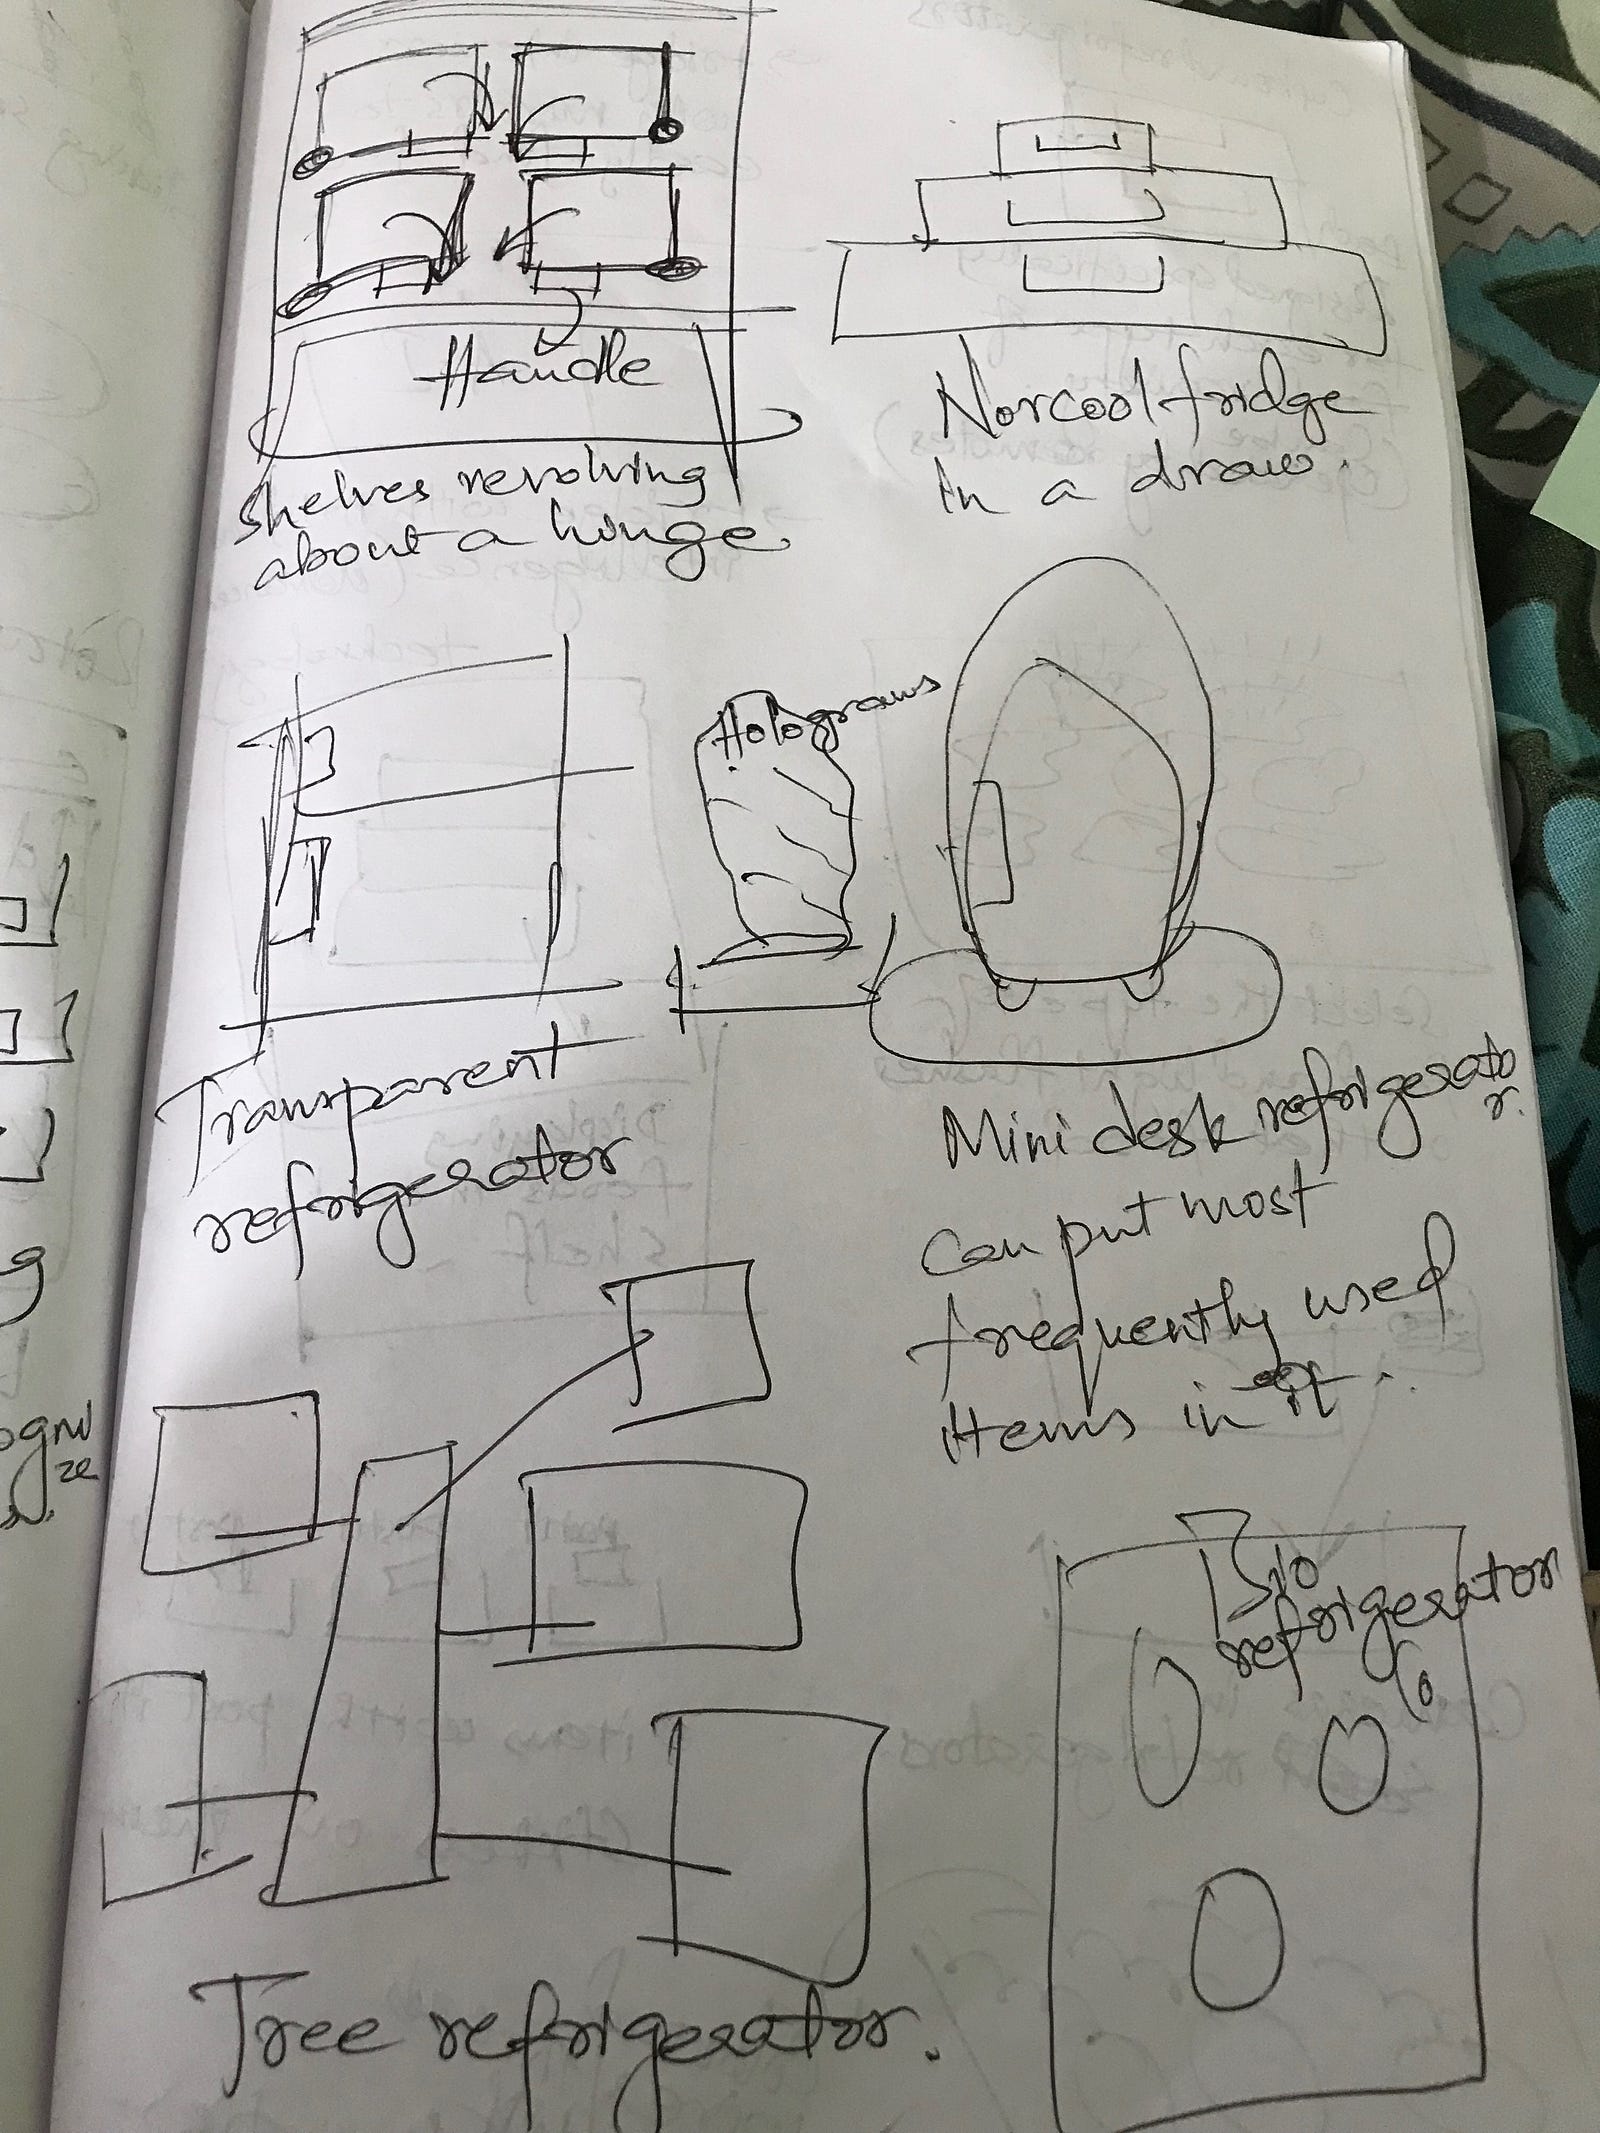 Handle
Shelves revolving
about a hinge
Norcool fridge
in a draw.
Transparent
refrigerator
Holograms
Mini desk refrigerato
r.
Can put most
frequently used
items in it.
Tree refrigerator.
Bio
refrigerator